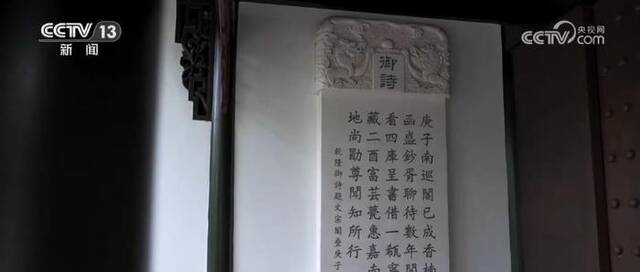 CCTV 13
新闻
CCTV 央视网
com
御詩
庚子南巡閣已成香楠
函盛鈔胥聊待數年間
看四庫呈書借一瓻寧
藏二酉富芸甍惠嘉南
地尚勖尊聞知所行
乾隆御詩題文宗閣疊庚子